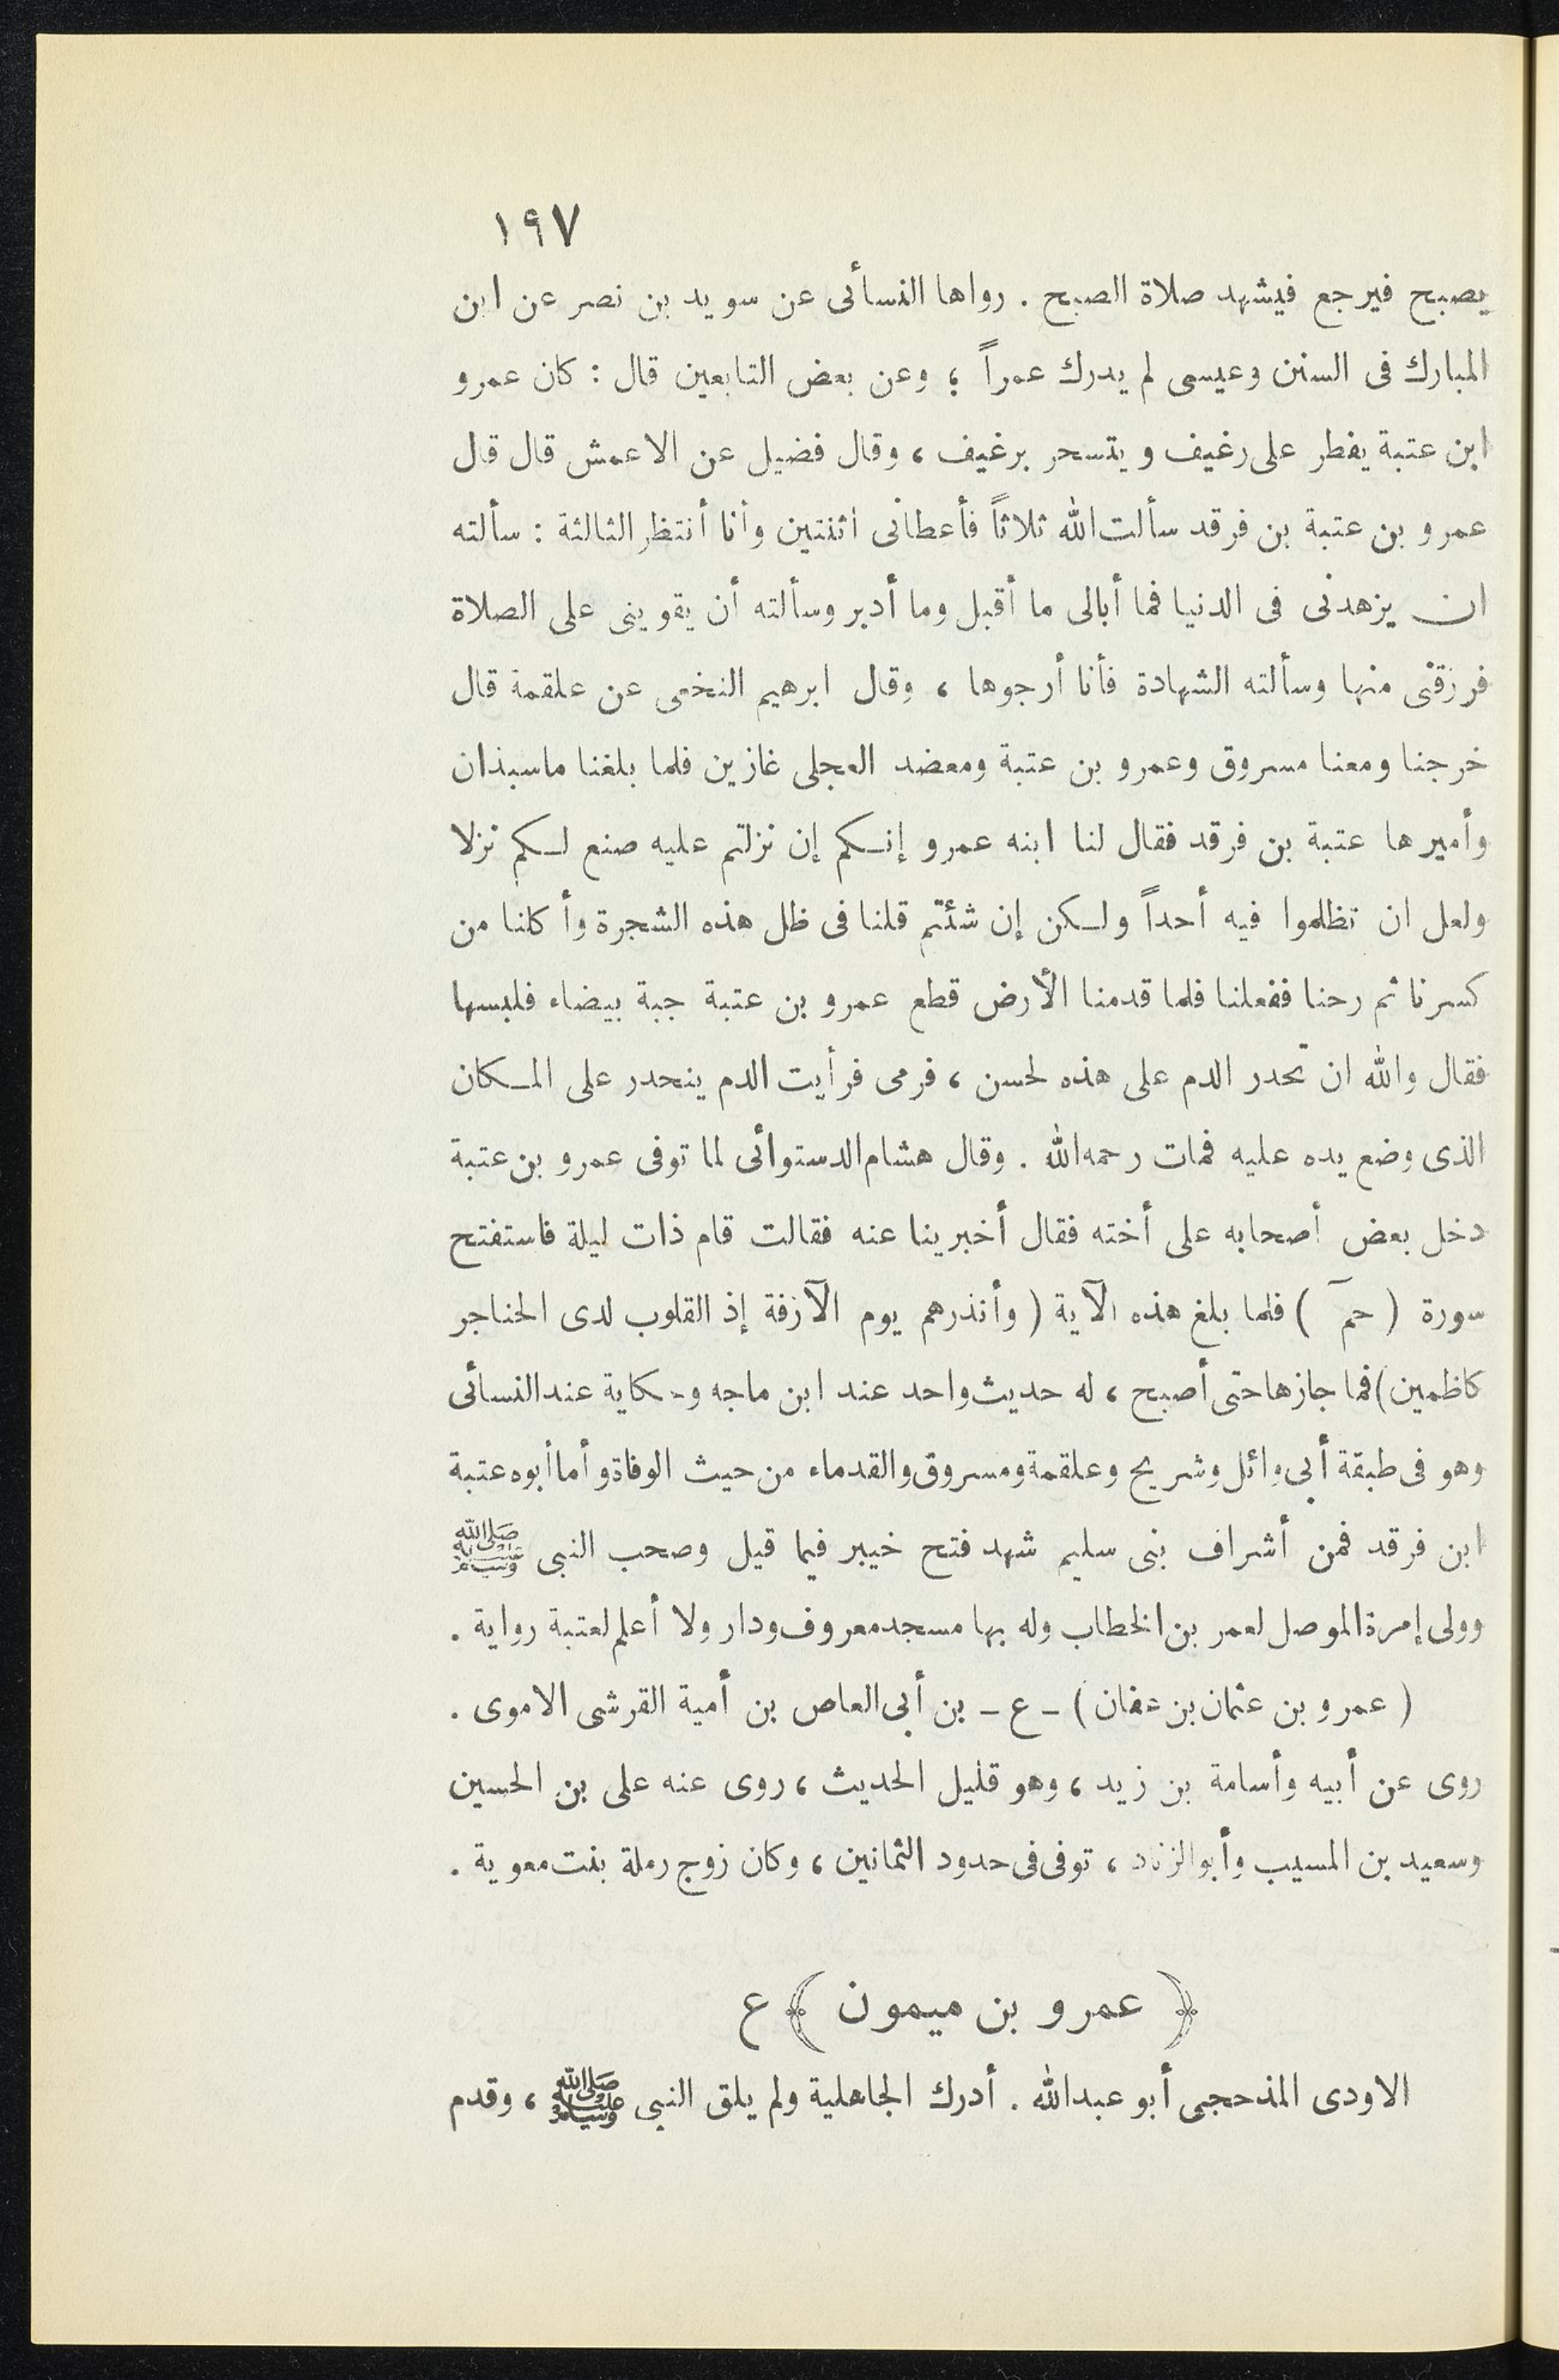 ١٩٧
يصبح فيرجع فيشهد صلاة الصبح . رواها النسائى عن سويد بن نصر عن ابن
المبارك فى السنن وعيسى لم يدرك عمراً ؛ وعن بعض التابعين قال : كان عمرو
ابن عتبة يفطر على رغيف ويتسحر برغيف ، وقال فضيل عن الاعمش قال قال
عمرو بن عتبة بن فرقد سألت الله ثلاثاً فأعطانى اثنتين وأنا أنتظر الثالثة : سألته
ان يزهدنى فى الدنيا فما أبالى ما أقبل وما أدبر وسألته أن يقوينى على الصلاة
فرزقنى منها وسألته الشهادة فأنا أرجوها ، وقال ابرهيم النخعى عن علقمة قال
خرجنا ومعنا مسروق وعمرو بن عتبة ومعضد العجلى غازين فلما بلغنا ماسبذان
وأميرها عتبة بن فرقد فقال لنا ابنه عمرو إنكم إن نزلتم عليه صنع لكم نزلا
ولعل ان تظلموا فيه أحداً ولكن إن شئتم قلنا فى ظل هذه الشجرة وأكلنا من
كسرنا ثم رحنا ففعلنا فلما قدمنا الأرض قطع عمرو بن عتبة جبة بيضاء فلبسها
فقال والله ان تحدر الدم على هذه لحسن ، فرمى فرأيت الدم ينحدر على المكان
الذى وضع يده عليه فمات رحمه الله . وقال هشام الدستوائى لما توفى عمرو بن عتبة
دخل بعض أصحابه على أخته فقال أخبرينا عنه فقالت قام ذات ليلة فاستفتح
سورة ( حمٓ ) فلما بلغ هذه الآية ( وأنذرهم يوم الآزفة إذ القلوب لدى الحناجر
كاظمين ) فما جازها حتى أصبح ، له حديث واحد عند ابن ماجه وحكاية عند النسائى
وهو فى طبقة أبى وائل وشريح وعلقمة ومسروق والقدماء من حيث الوفاة وأما أبوه عتبة
ابن فرقد فمن أشراف بنى سليم شهد فتح خيبر فيما قيل وصحب النبى ﷺ
وولى إمرة الموصل لعمر بن الخطاب وله بها مسجد معروف ودار ولا أعلم لعتبة رواية .
( عمرو بن عثمان بن عفان ) - ع - بن أبى العاص بن أمية القرشى الاموى .
روى عن أبيه وأسامة بن زيد ، وهو قليل الحديث ، روى عنه على بن الحسين
وسعيد بن المسيب وأبو الزناد ، توفى فى حدود الثمانين ، وكان زوج رملة بنت معوية .
﴿ عمرو بن ميمون ﴾ ع
الاودى المذحجى أبو عبد الله . أدرك الجاهلية ولم يلق النبى ﷺ ، وقدم